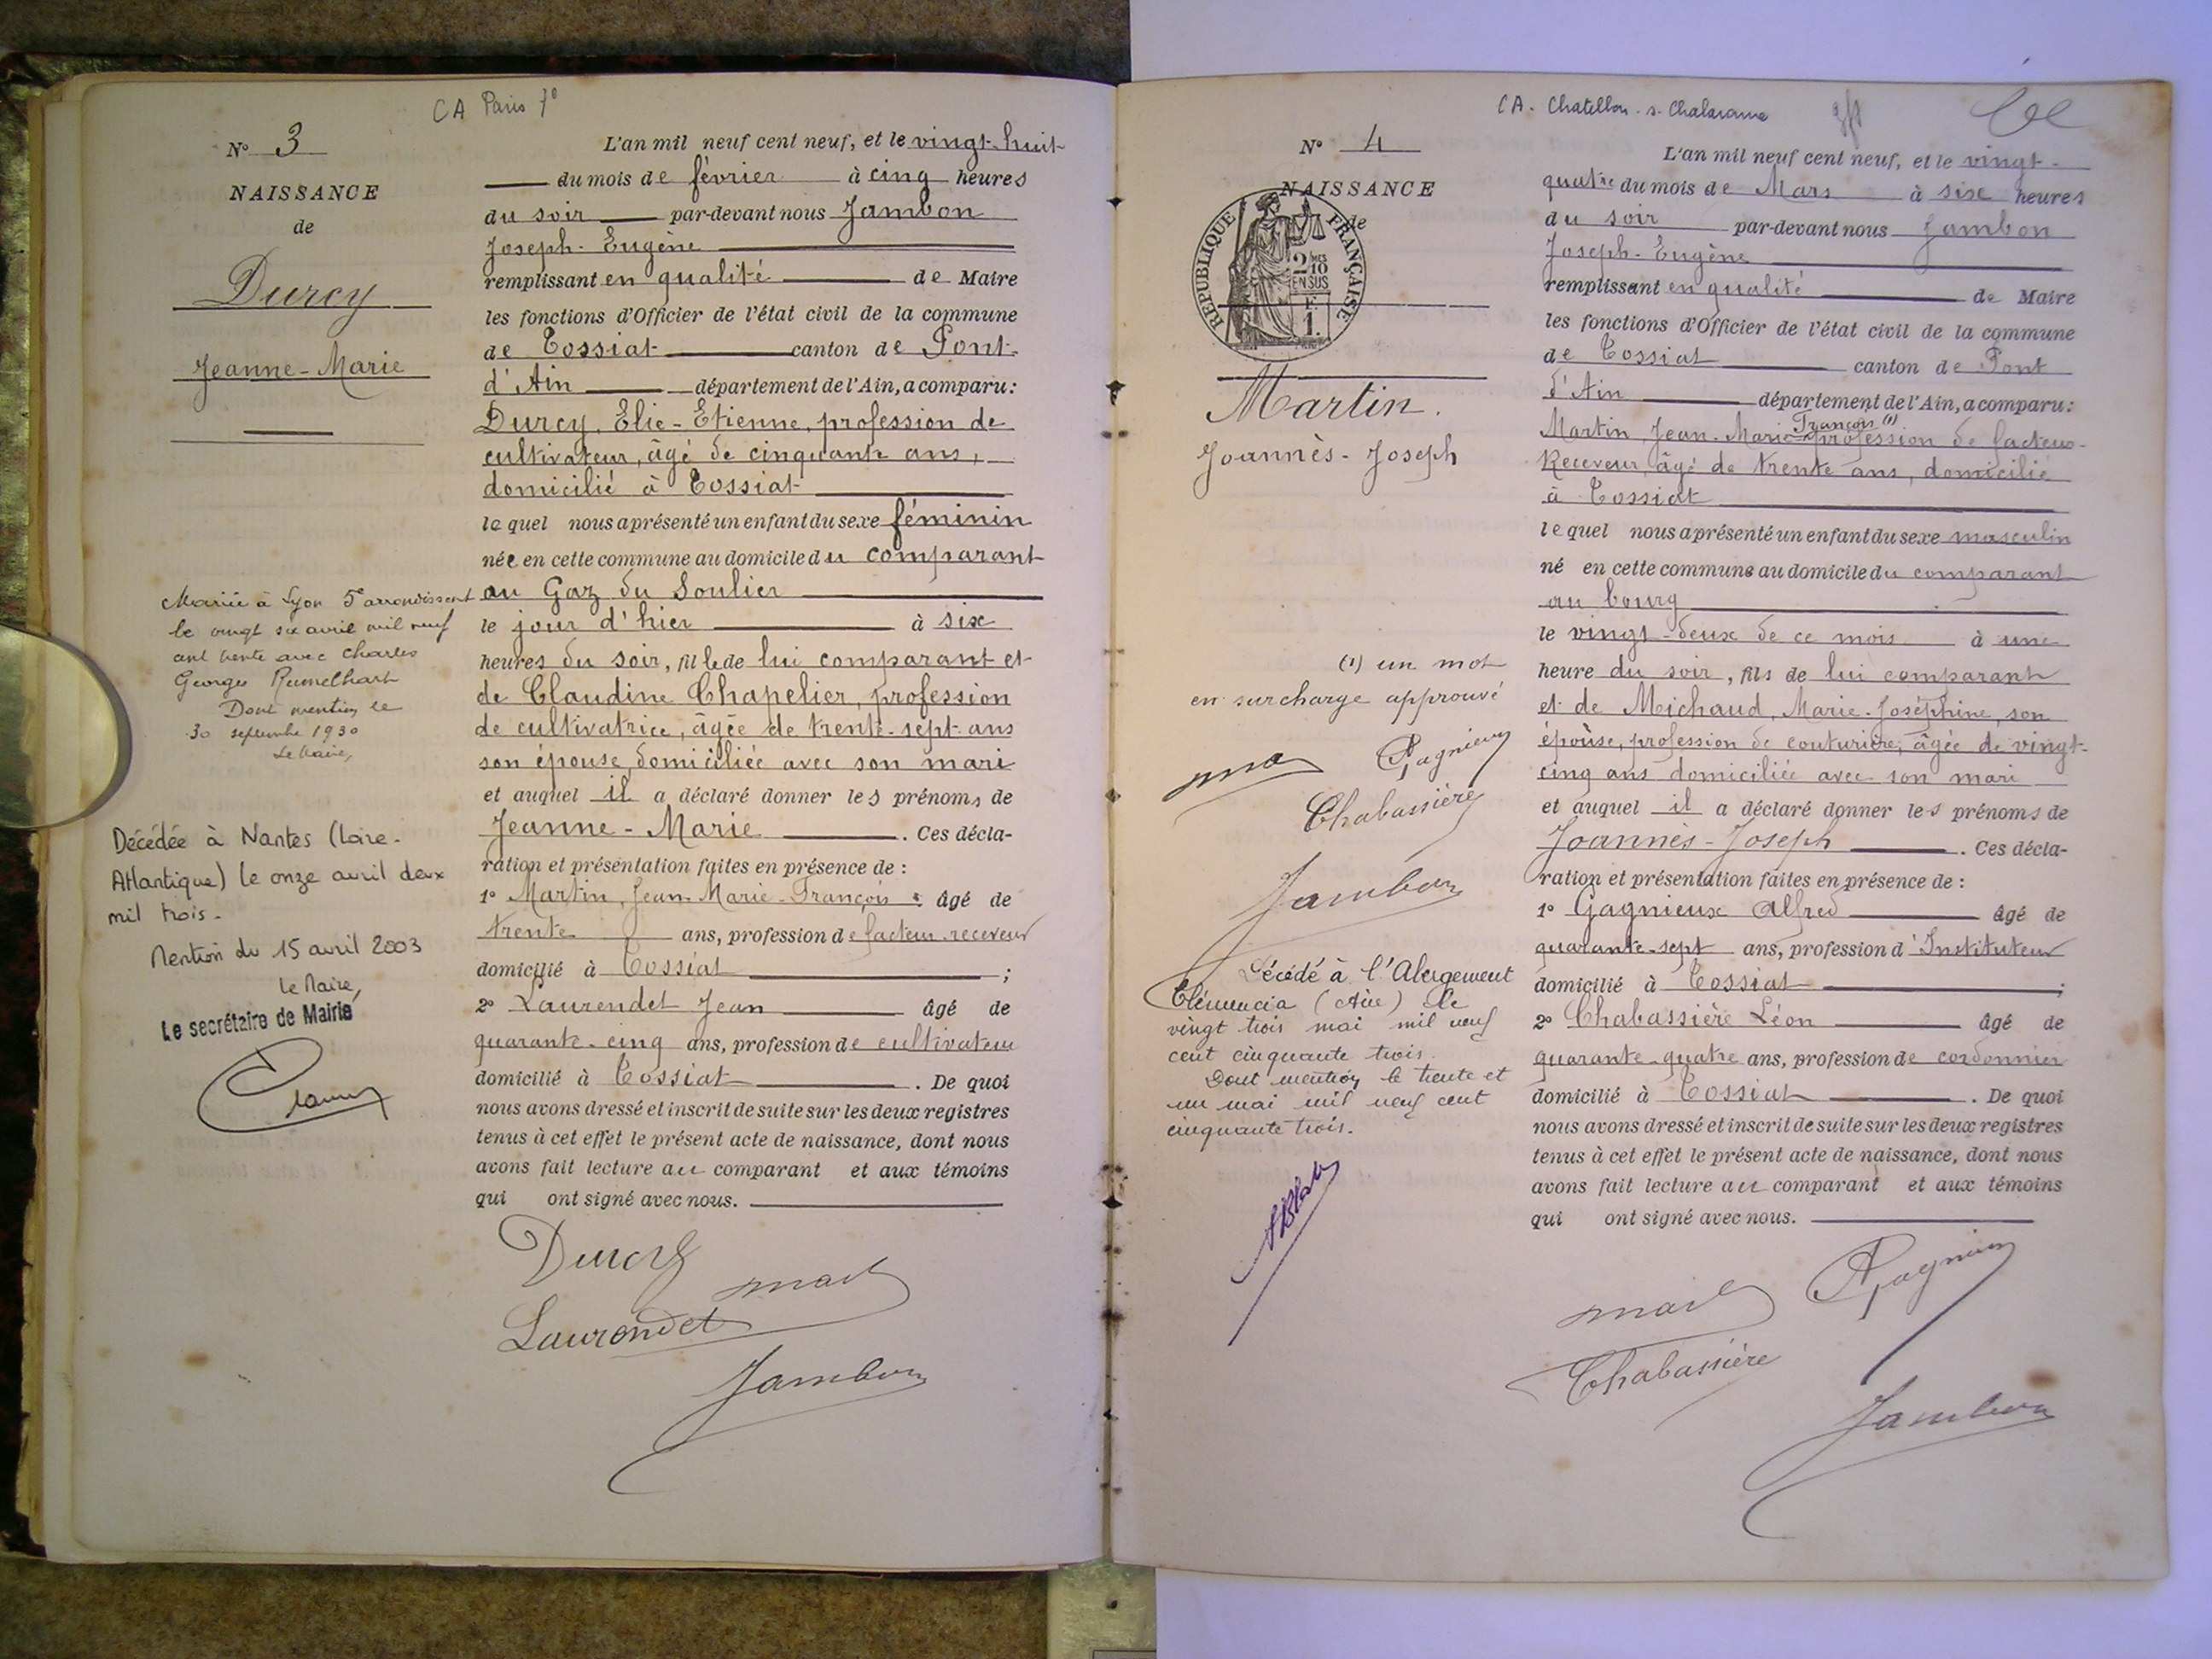 CA Paris 7°
N° 3
NAISSANCE
de
Durcy
Jeanne-Marie
Mariée à Lyon 5e arrondissent
le vingt six avril mil neuf
cent trente avec Charles
Georges Rumelhart
Dont mention le
30 septembre 1930
Le Maire,
Décédée à Nantes (Loire-
Atlantique) le onze avril deux
mil trois.
Mention du 15 avril 2003
Le Maire,
Le secrétaire de Mairie
L'an mil neuf cent neuf, et le vingt-huit
du mois de février à cinq heures
du soir par-devant nous Jambon
Joseph-Eugène
remplissant en qualité de Maire
les fonctions d'Officier de l'état civil de la commune
de Tossiat canton de Pont-
d'Ain département de l'Ain, a comparu:
Durcy, Elie-Etienne, profession de
cultivateur, âgé de cinquante ans,
domicilié à Tossiat
lequel nous a présenté un enfant du sexe féminin
née en cette commune au domicile du comparant
au Gaz du Soulier
le jour d'hier à six
heures du soir, fille de lui comparant et
de Claudine Chapelier, profession
de cultivatrice, âgée de trente-sept ans
son épouse, domiciliée avec son mari
et auquel il a déclaré donner les prénoms de
Jeanne-Marie. Ces décla-
ration et présentation faites en présence de :
1° Martin, Jean-Marie-François âgé de
trente ans, profession de facteur-receveur
domicilié à Tossiat ;
2° Laurendet Jean âgé de
quarante-cinq ans, profession de cultivateur
domicilié à Tossiat. De quoi
nous avons dressé et inscrit de suite sur les deux registres
tenus à cet effet le présent acte de naissance, dont nous
avons fait lecture au comparant et aux témoins
qui ont signé avec nous.
Durcy
Laurendet
Jambon
CA. Chatillon-s-Chalaronne
N° 4
NAISSANCE
de
REPUBLIQUE FRANÇAISE
2/10mes
EN SUS
F
1.
Martin.
Joannès-Joseph
(1) un mot
en surcharge approuvé
Gagnieux
Chabassière
Jambon
Décédé à l'Abergement
Clémencia (Ain) le
vingt trois mai mil neuf
cent cinquante trois.
Dont mention le trente et
un mai mil neuf cent
cinquante trois.
L'an mil neuf cent neuf, et le vingt-
quatre du mois de Mars à six heures
du soir par-devant nous Jambon
Joseph-Eugène
remplissant en qualité de Maire
les fonctions d'Officier de l'état civil de la commune
de Tossiat canton de Pont
d'Ain département de l'Ain, a comparu:
François (1)
Martin, Jean-Marie profession de facteur-
Receveur, âgé de trente ans, domicilié
à Tossiat
lequel nous a présenté un enfant du sexe masculin
né en cette commune au domicile du comparant
au bourg
le vingt-deux de ce mois à une
heure du soir, fils de lui comparant
et de Michaud, Marie-Joséphine, son
épouse, profession de couturière, âgée de vingt-
cinq ans domiciliée avec son mari
et auquel il a déclaré donner les prénoms de
Joannès-Joseph. Ces décla-
ration et présentation faites en présence de :
1° Gagnieux Alfred âgé de
quarante-sept ans, profession d'Instituteur
domicilié à Tossiat ;
2° Chabassière Léon âgé de
quarante-quatre ans, profession de cordonnier
domicilié à Tossiat. De quoi
nous avons dressé et inscrit de suite sur les deux registres
tenus à cet effet le présent acte de naissance, dont nous
avons fait lecture au comparant et aux témoins
qui ont signé avec nous.
Gagnieux
Chabassière
Jambon